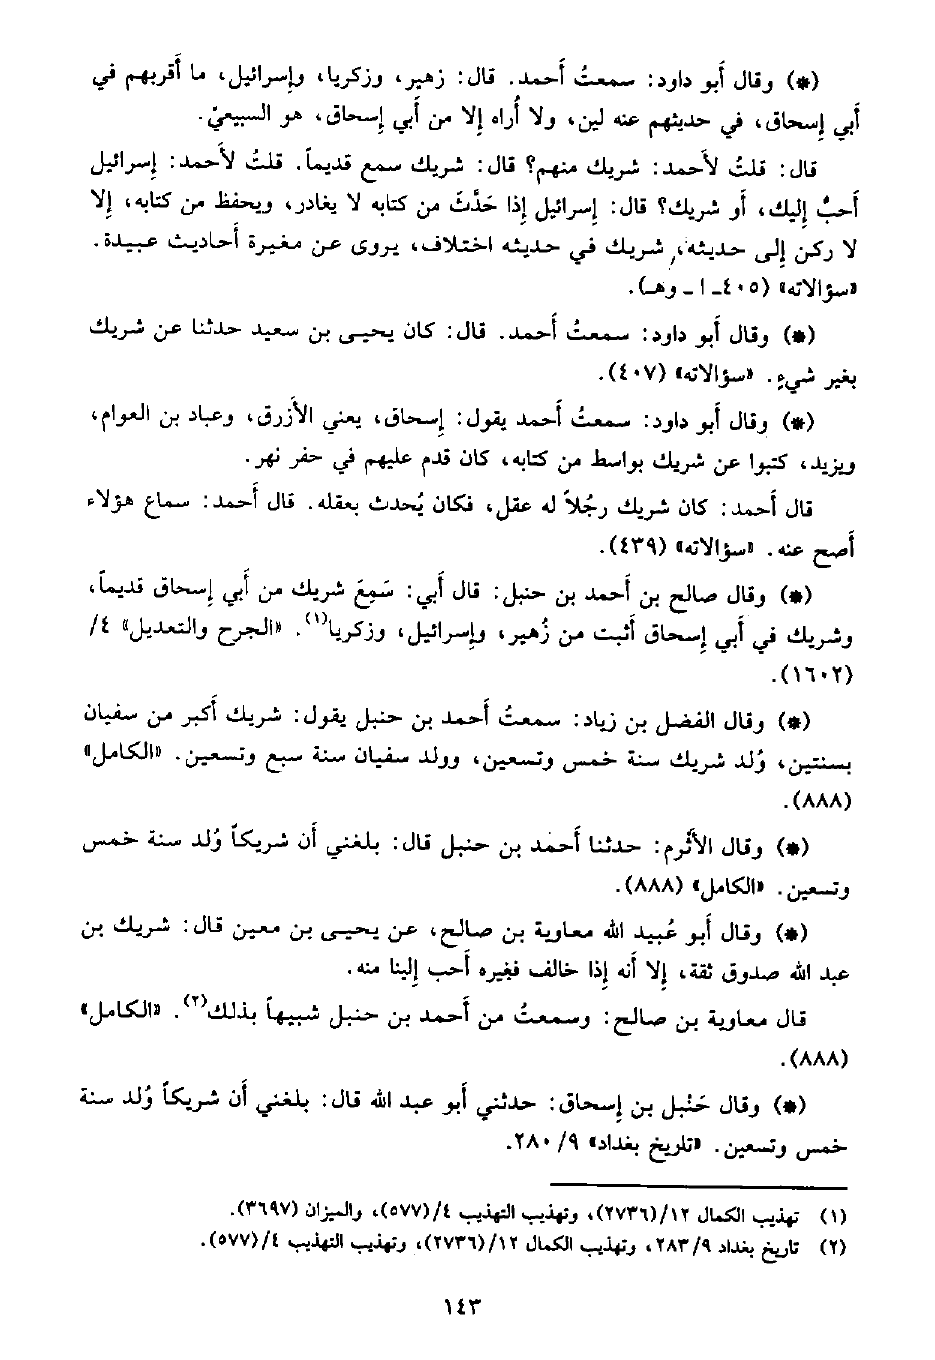 (*) وقال أَبو داود: سمعتُ أَحمد. قال: زهير، وزكريا، وإسرائيل، ما أَقربهم في
أَبي إسحاق، في حديثهم عنه لين، ولا أُراه إلا من أَبي إسحاق، هو السبيعيّ.
قال: قلتُ لأحمد: شريك منهم؟ قال: شريك سمع قديماً. قلتُ لأحمد: إسرائيل
أَحبُّ إليك، أو شريك؟ قال: إسرائيل إذا حَدَّثَ من كتابه لا يغادر، ويحفظ من كتابه، إلا
لا ركن إلى حديثه، شريك في حديثه اختلاف، يروى عن مغيرة أَحاديث عبيدة.
«سؤالاته» (٤٠٥ـ ا ـ وهـ).
(*) وقال أَبو داود: سمعتُ أَحمد. قال: كان يحيى بن سعيد حدثنا عن شريك
بغير شيءٍ. «سؤالاته» (٤٠٧).
(*) وقال أَبو داود: سمعتُ أَحمد يقول: إسحاق، يعني الأَزرق، وعباد بن العوام،
ويزيد، كتبوا عن شريك بواسط من كتابه، كان قدم عليهم في حفر نهر.
قال أَحمد: كان شريك رجُلاً له عقل، فكان يُحدث بعقله. قال أَحمد: سماع هؤلاء
أَصح عنه. «سؤالاته» (٤٣٩).
(*) وقال صالح بن أَحمد بن حنبل: قال أَبي: سَمِعَ شريك من أَبي إسحاق قديماً،
وشريك في أَبي إسحاق أَثبت من زُهير، وإسرائيل، وزكريا(١). «الجرح والتعديل» ٤/
(١٦٠٢).
(*) وقال الفضل بن زياد: سمعتُ أَحمد بن حنبل يقول: شريك أَكبر من سفيان
بسنتين، وُلد شريك سنة خمس وتسعين، وولد سفيان سنة سبع وتسعين. «الكامل»
(٨٨٨).
(*) وقال الأَثرم: حدثنا أَحمد بن حنبل قال: بلغني أَن شريكاً وُلد سنة خمس
وتسعين. «الكامل» (٨٨٨).
(*) وقال أَبو عُبيد الله معاوية بن صالح، عن يحيى بن معين قال: شريك بن
عبد الله صدوق ثقة، إلا أَنه إذا خالف فغيره أَحب إلينا منه.
قال معاوية بن صالح: وسمعتُ من أَحمد بن حنبل شبيهاً بذلك(٢). «الكامل»
(٨٨٨).
(*) وقال حَنْبل بن إسحاق: حدثني أَبو عبد الله قال: بلغني أَن شريكاً وُلد سنة
خمس وتسعين. «تاريخ بغداد» ٩/ ٢٨٠.
(١) تهذيب الكمال ١٢/(٢٧٣٦)، وتهذيب التهذيب ٤/(٥٧٧)، والميزان (٣٦٩٧).
(٢) تاريخ بغداد ٩/ ٢٨٣، وتهذيب الكمال ١٢/(٢٧٣٦)، وتهذيب التهذيب ٤/(٥٧٧).
١٤٣